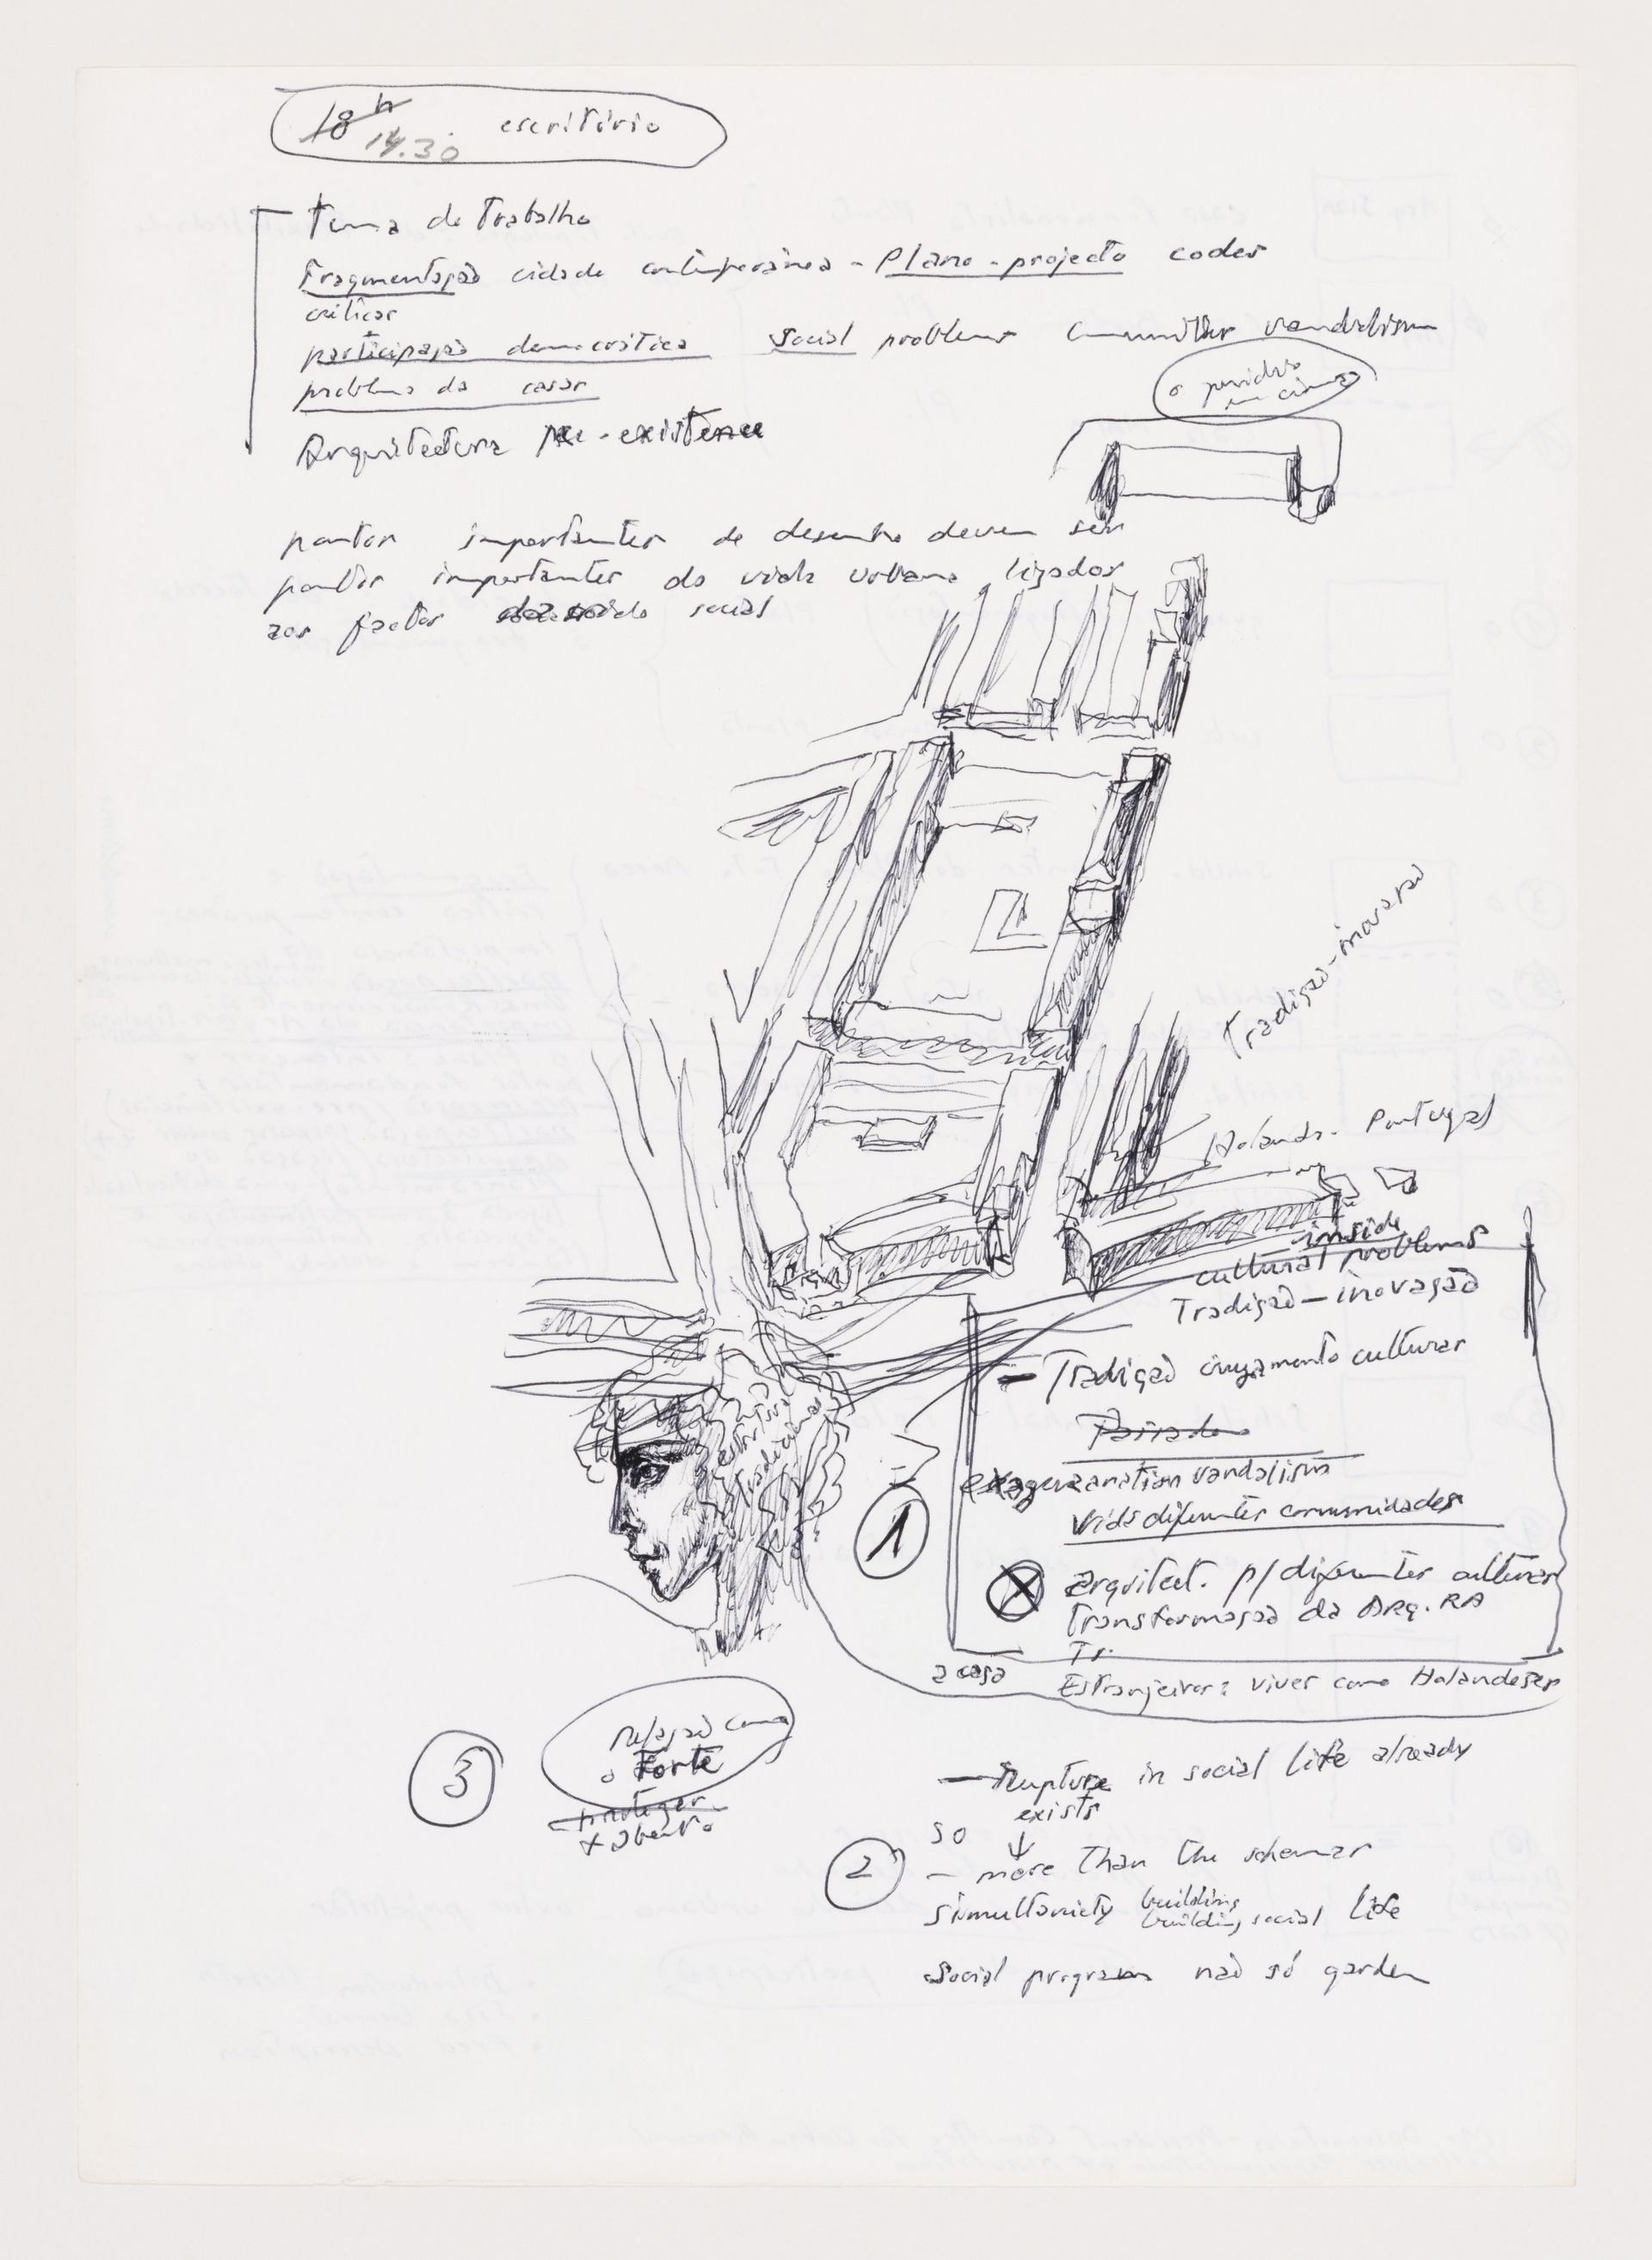 18h
14.30 escritório
Tema de Trabalho
Fragmentação cidade contemporânea - Plano - projecto codes
críticas
participação democrática social problems vandalism
problema da casas
Arquitectura Pre-existence
o
pontos importantes de desenho devem ser
pontos importantes da vida urbana ligados
aos factos social
Tradição-inovação
Holanda. Portugal
inside
cultural problems
Tradição - inovação
- Tradição cruzamento culturas
Passado
vandalism
vida diferentes comunidades
arquitect. p/ diferentes culturas
Transformação da Arq. RA
Tr.
a casa
Estranjeiros: viver como Holandeses
estrutura
tradicional
1
3
relação com
o Forte
proteger
+ aberto
- Rupture in social life already
exists
so ↓
2
- more than the schemas
simultaneity building
building social life
Social program não só garden